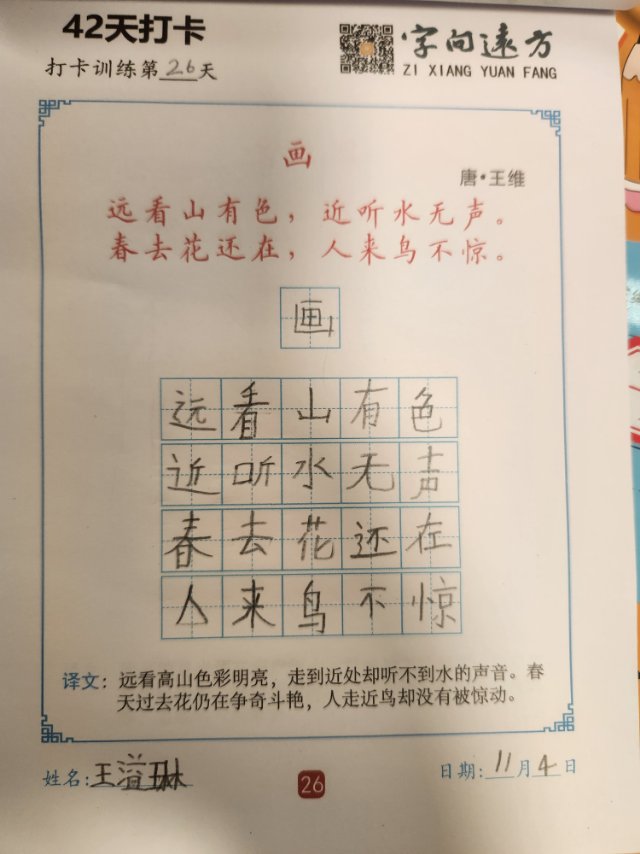 42天打卡
字向远方
打卡训练第26天
ZI XIANG YUAN FANG
画
唐·王维
远看山有色，近听水无声。
春去花还在，人来鸟不惊。
画
远看山有色
近听水无声
春去花还在
人来鸟不惊
译文：远看高山色彩明亮，走到近处却听不到水的声音。春
天过去花仍在争奇斗艳，人走近鸟却没有被惊动。
姓名：王溢琳
26
日期：11月4日